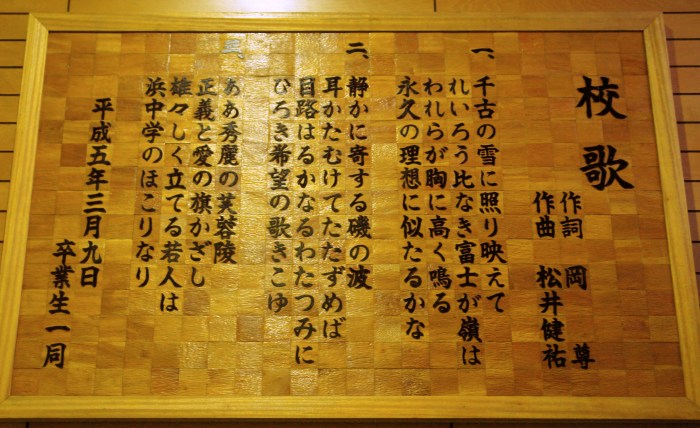 校歌
作詞 岡 尊
作曲 松井健祐
一、千古の雪に照り映えて
れいろう比なき富士が嶺は
われらが胸に高く鳴る
永久の理想に似たるかな
二、静かに寄する磯の波
耳かたむけてたたずめば
目路はるかなるわたつみに
ひろき希望の歌きこゆ
三、ああ秀麗の芙蓉陵
正義と愛の旗かざし
雄々しく立てる若人は
浜中学のほこりなり
平成五年三月九日
卒業生一同